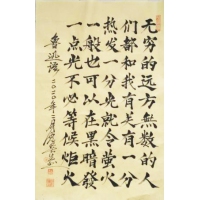 无穷的远方無數的人
们都和我有关有一分
热发一分光就令萤火
一般也可以在黑暗發
一点光不必等候炬火
鲁迅語 二〇二〇年二月